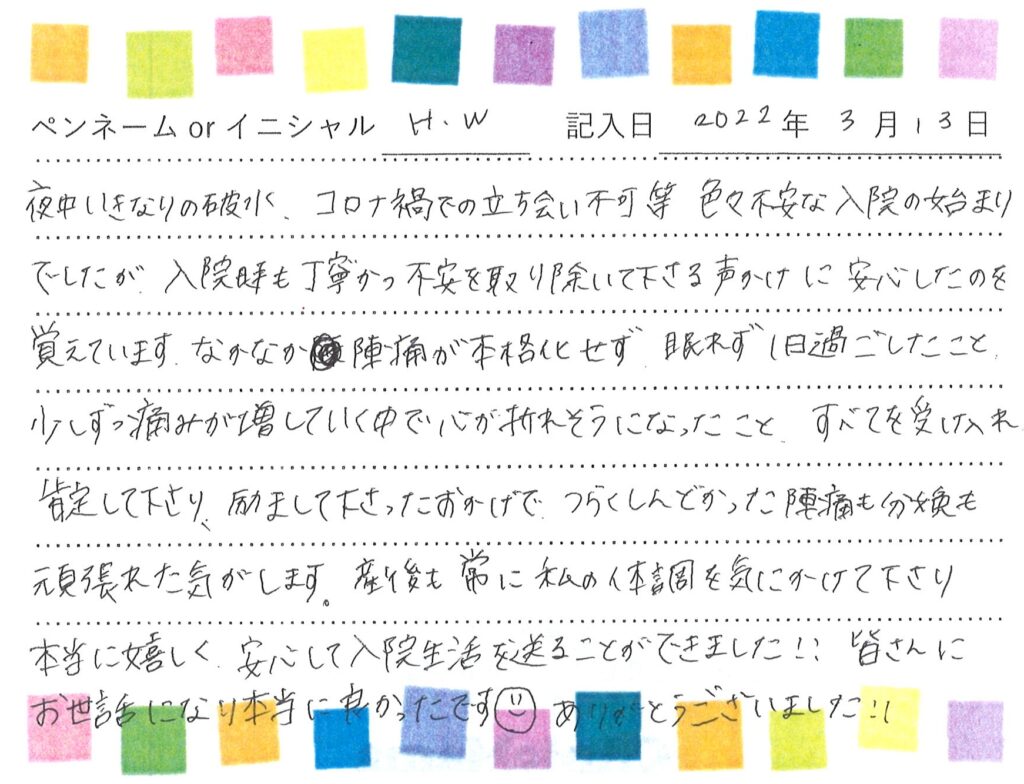 ペンネームorイニシャル H.W 記入日 2022年 3月13日
夜中いきなりの破水、コロナ禍での立ち会い不可等 色々不安な入院の始まり
でしたが、入院時も丁寧かつ不安を取り除いて下さる声かけに 安心したのを
覚えています。なかなか 陣痛が本格化せず 眠れず 1日過ごしたこと、
少しずつ痛みが増していく中で心が折れそうになったこと、すべてを受け入れ
肯定して下さり、励まして下さったおかげで、つらくしんどかった陣痛も分娩も
頑張れた気がします。産後も常に私の体調を気にかけて下さり
本当に嬉しく、安心して入院生活を送ることができました!! 皆さんに
お世話になり本当に良かったです ありがとうございました!!